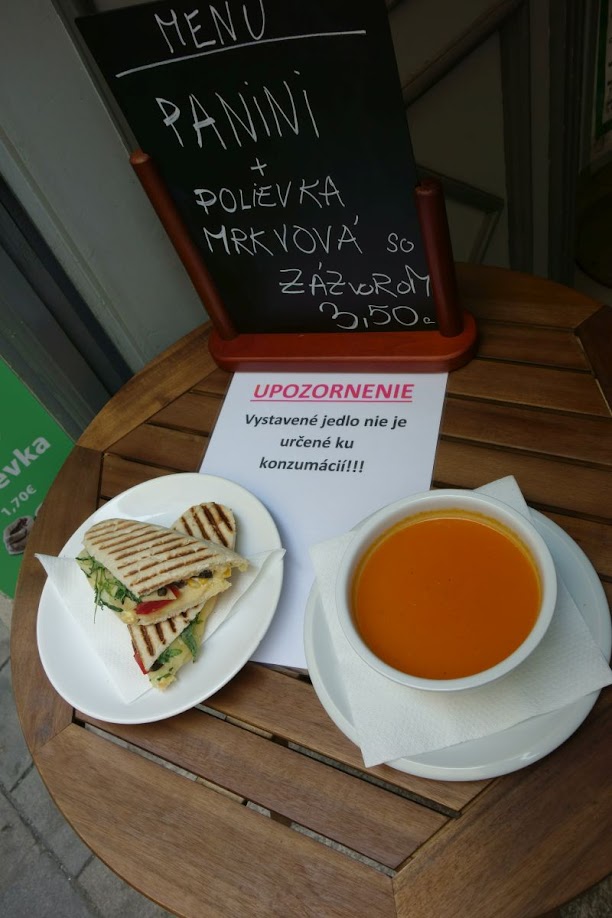 MENU
PANINI
+
POLIEVKA
MRKVOVÁ SO
ZÁZVOROM
3,50€
UPOZORNENIE
Vystavené jedlo nie je
určené ku
konzumácií!!!
evka
1,70€